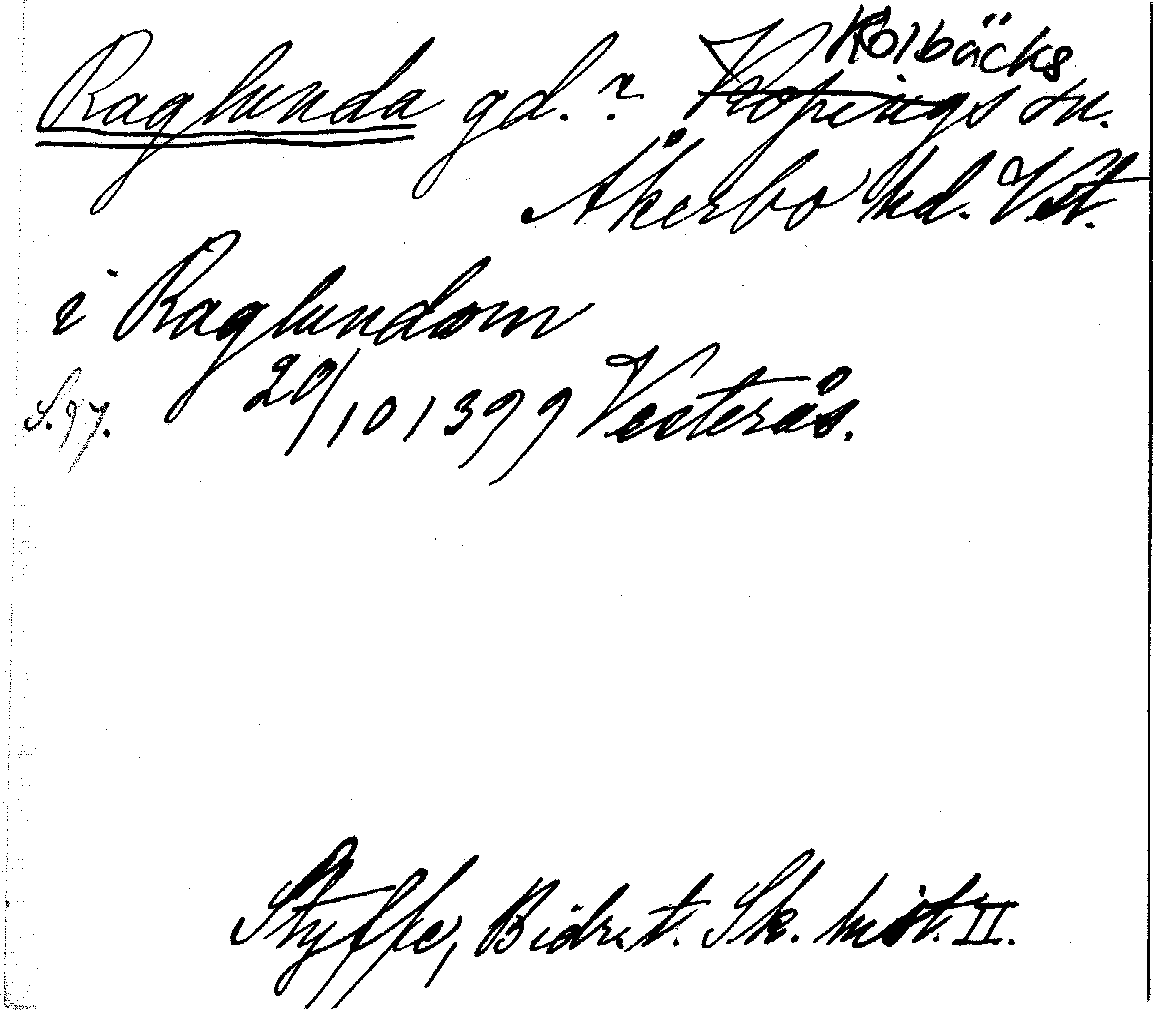 Kolbäcks
Raglunda gd.? Köpings sn.
Åkerbo hd. Vstl.
i Raglundom
S. 97. 20/10 1399 Vesterås.
Styffe, Bidr. t. Sk. hist. II.